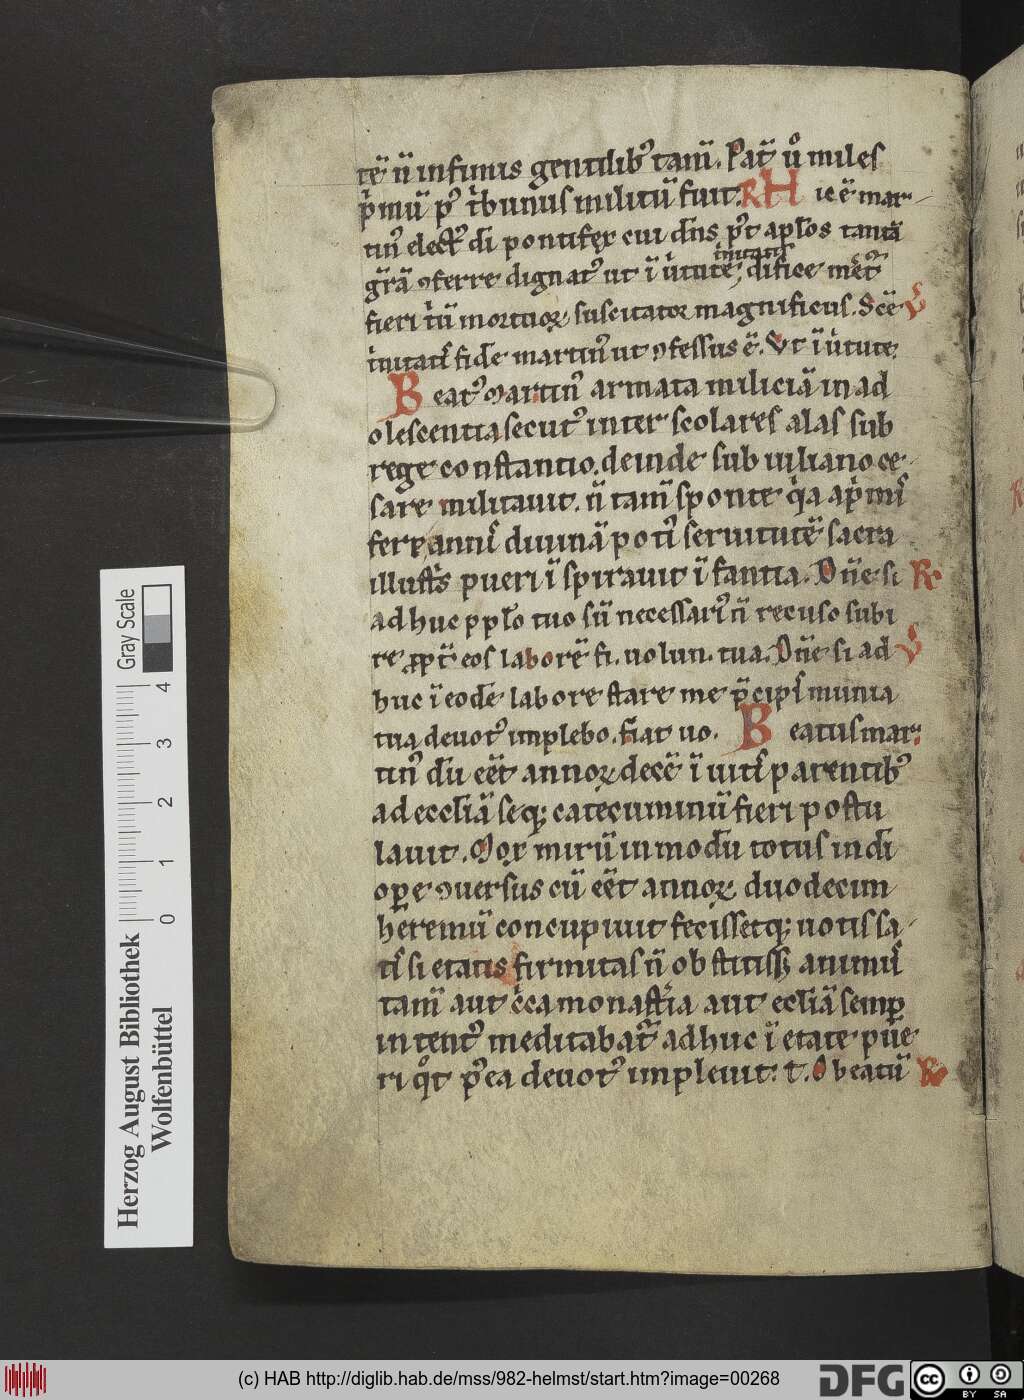 tē n̄ infimis gentilib᾽ tam̄. Pat̄ u᷎ miles
pͥmū p᾽ tͥbunus militū fuit. R H ic ē mar
tin᾽ elect᾽ di pontifex cui dn̄s p᾽t apl̄os tantā
gr̄ā ꝯferre dignat᾽ ut ī u͛tute
imitatis
fieri mortuoꝝ suscitator magnificus. Scē V
fide martin᾽ ut ꝯfessus ē. Vt ī u͛tute
Beat᾽ martin᾽ armata miliciā in ad
olescentia secut᾽ inter scolares alas sub
rege constantio. deinde sub iuliano ce
sare militauit. n̄ tam̄ sponte qͥa a pͥmis
fere annis diuinā poti᾽ seruitutē sacra
illustͥs pueri īspirauit īfantia. Dn̄e si R
adhuc ppl̄o tuo sū necessari᾽ n̄ recuso subi
re ꝓpt̄ eos laborē fi. uolun. tua. Dn̄e si ad V
huc ī eode labore stare me p̄cipis munia
tua deuot᾽ implebo. fiat uo. Beatus mar
tin᾽ dū eēt annoꝝ decē ī uitis parentib᾽
ad eccl̄iā seq; catecuminū fieri postu
lauit. Mox mirū in modū totus in di
oꝑe ꝯuersus cū eēt annoꝝ duodecim
heremū concupiuit fecissetq; uotis sa
tis si etatis firmitas n̄ obstitiss; animus
tam̄ aut c͛ca monast͛ia aut eccl̄iā semꝑ
intent᾽ meditabat᾽ adhuc ī etate pue
ri qᵒt p᾽ea deuot᾽ impleuit. t. O beatū R
Herzog August Bibliothek
Wolfenbüttel
Gray Scale
0 1 2 3 4
(c) HAB http://diglib.hab.de/mss/982-helmst/start.htm?image=00268
DFG
cc BY SA